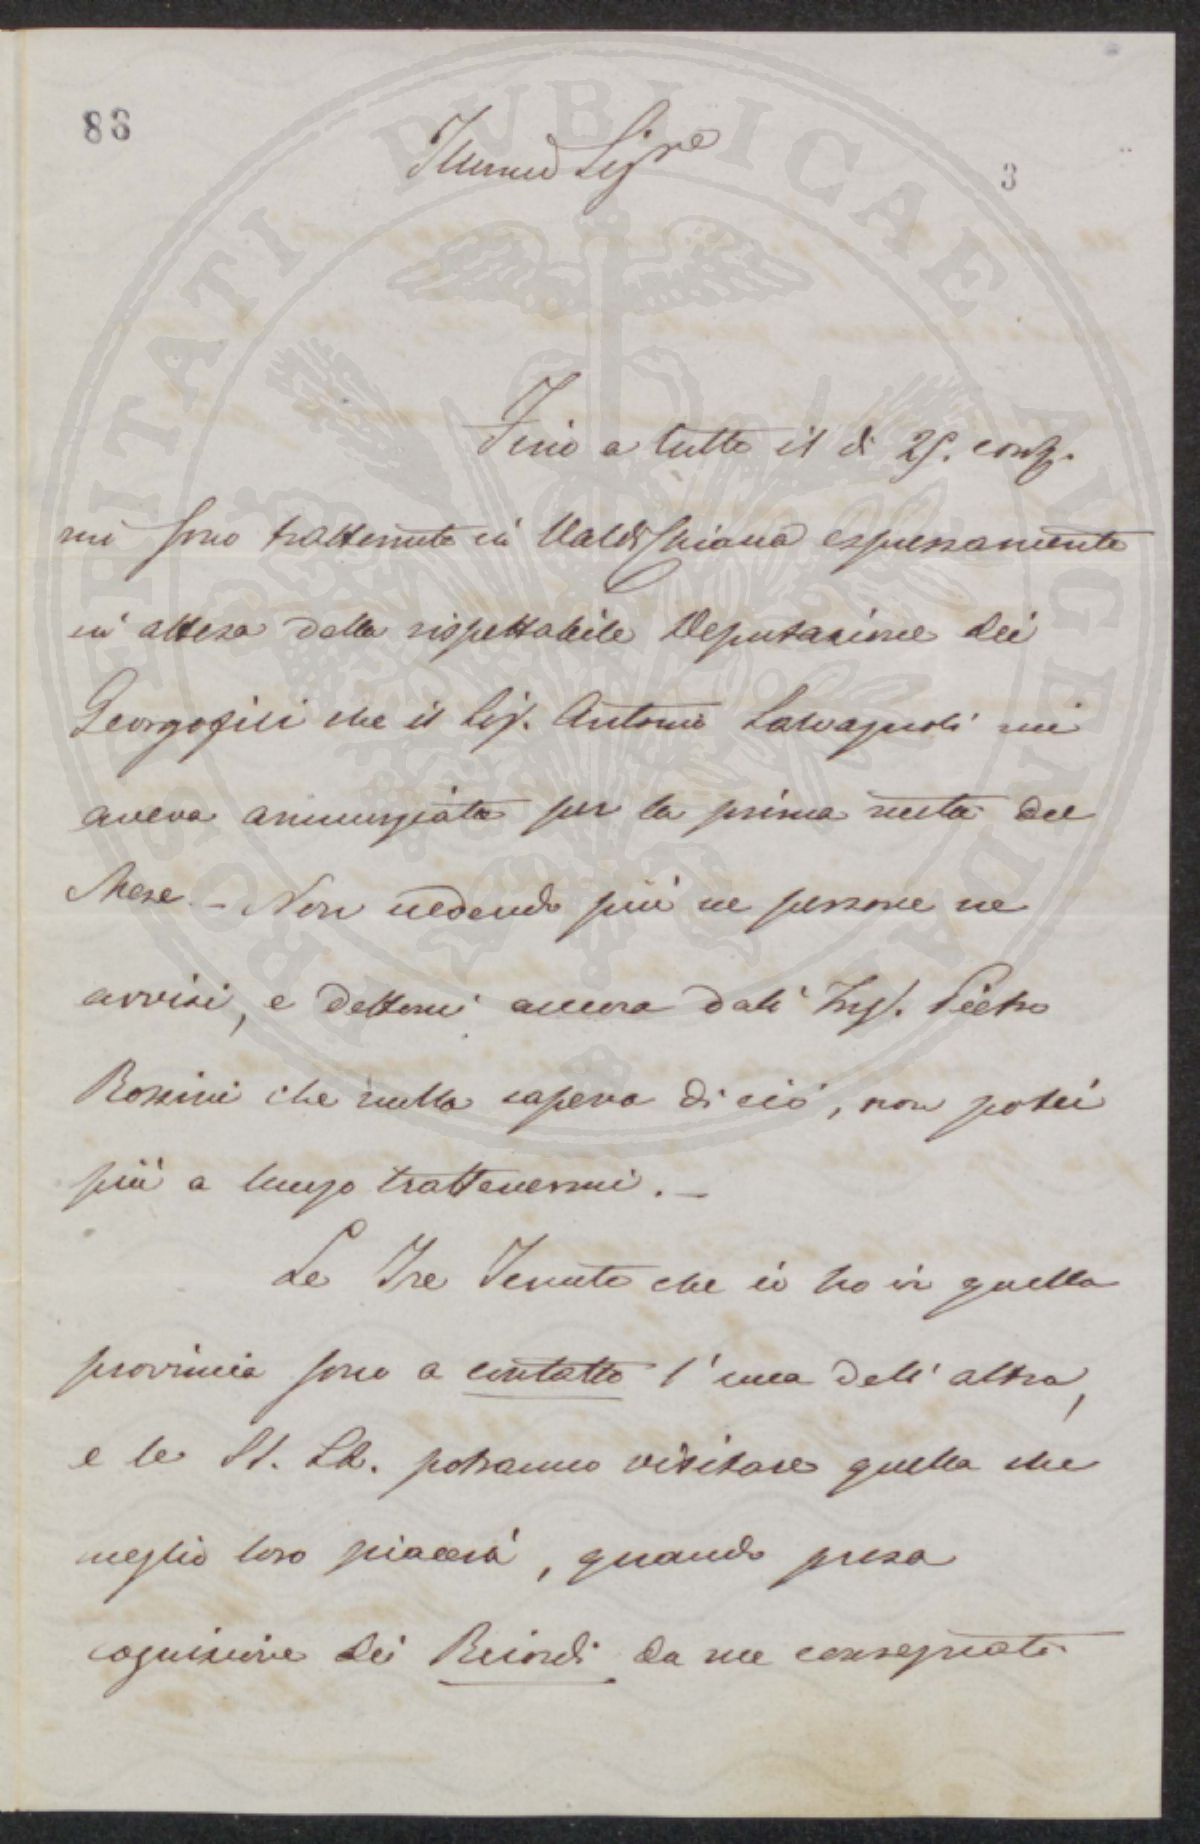 83
Illumo Sigre
3
Fino a tutto il dì 25. corrte.
mi sono trattenuto in Valdichiana espressamente
in attesa della rispettabile Deputazione dei
Georgofili che il Sig. Antonio Salvagnoli mi
aveva annunziata per la prima metà del
Mese. – Non vedendo più ne persone ne
avvisi, e dettomi ancora dall' Ing. Pietro
Rossini che nulla sapeva di ciò, non potei
più a lungo trattenermi. –
Le Tre Tenute che io ho in quella
provincia sono a contatto l'una dell' altra,
e le SS. LL. potranno visitare quella che
meglio loro piacerà, quando presa
cognizione dei Ricordi da me consegnati
PROSPERITATI PUBLICAE AUGENDAE